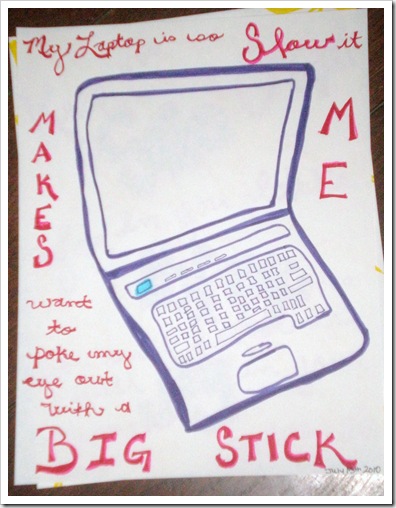 My Laptop is so Slow it
MAKES
ME
want
to
poke my
eye out
with a
BIG STICK
2010